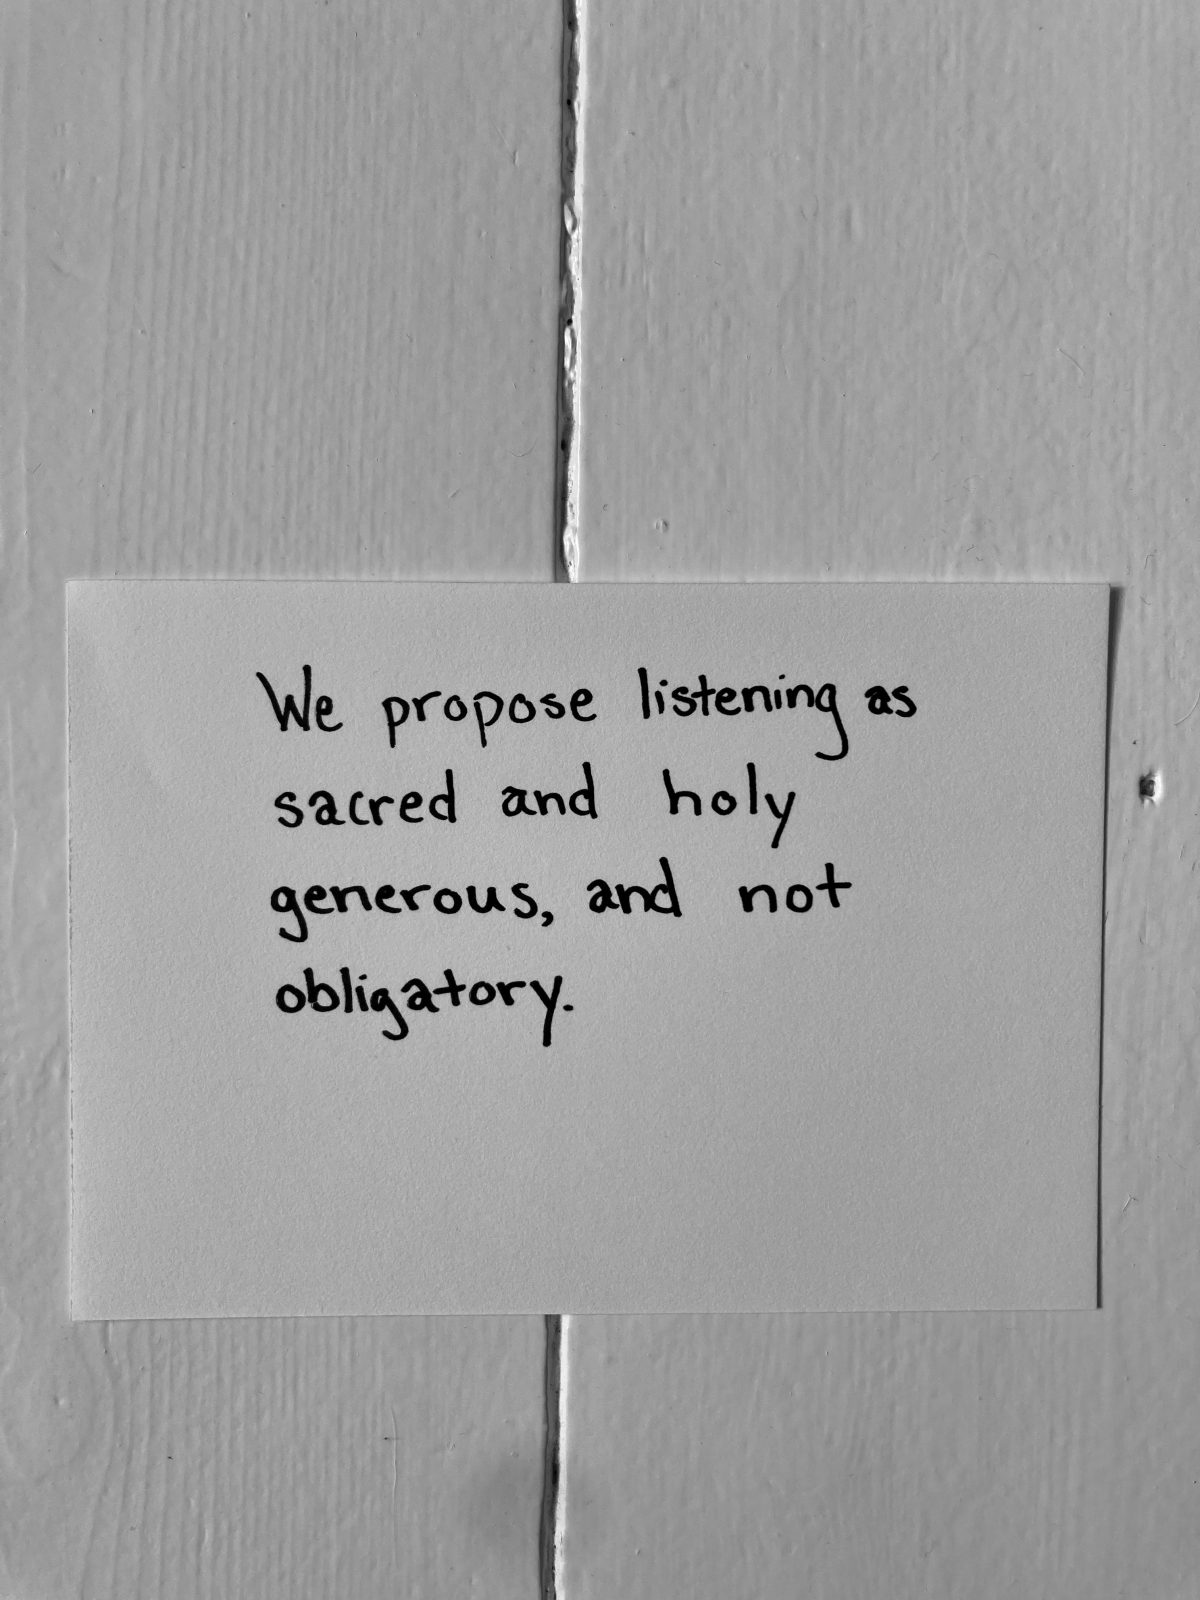 We propose listening as
sacred and holy
generous, and not
obligatory.